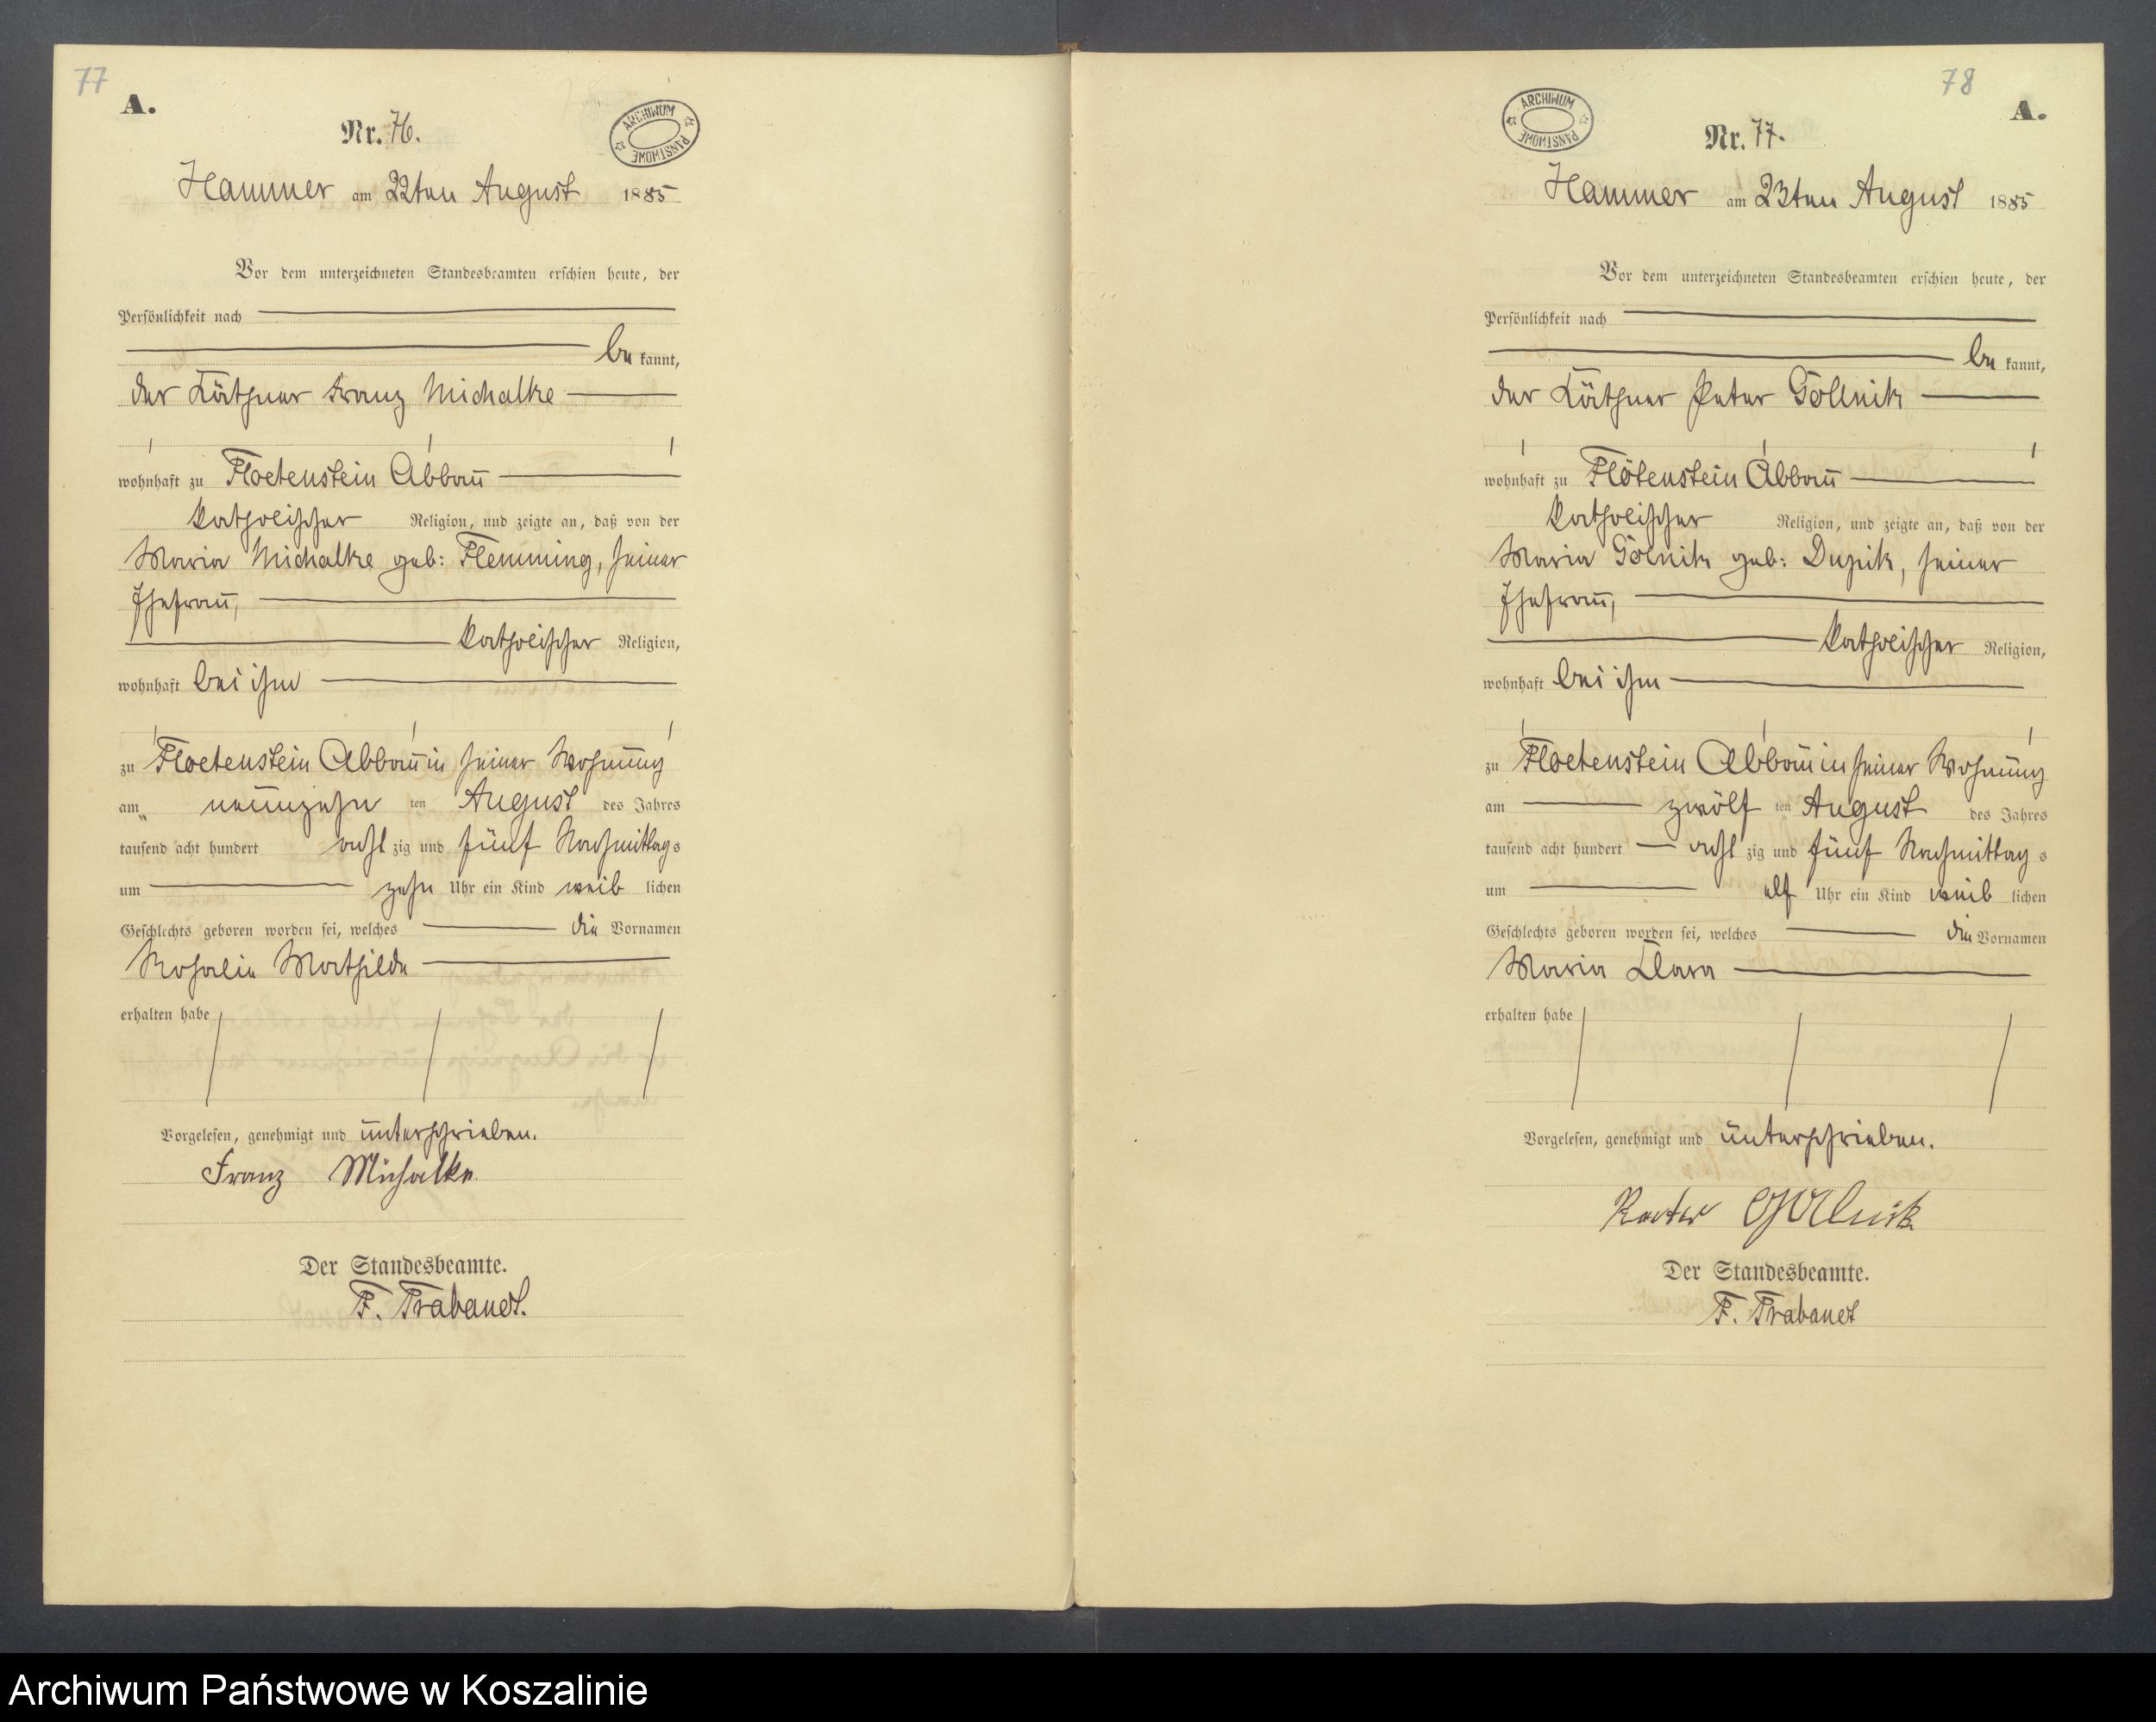 77
A.
Nr. 76.
ARCHIWUM PAŃSTWOWE
Hammer am 22ten August 1885
Vor dem unterzeichneten Standesbeamten erschien heute, der
Persönlichkeit nach
be kannt,
der Käthner Franz Michalke
wohnhaft zu Floetenstein Abbau
katholischer Religion, und zeigte an, daß von der
Maria Michalke geb: Flemming, seiner
Ehefrau,
katholischer Religion,
wohnhaft bei ihm
zu Floetenstein Abbau in seiner Wohnung
am neunzehn ten August des Jahres
tausend acht hundert acht zig und fünf Nachmittags
um zehn Uhr ein Kind weib lichen
Geschlechts geboren worden sei, welches die Vornamen
Rosalie Mathilde
erhalten habe
Vorgelesen, genehmigt und unterschrieben.
Franz Michalke
Der Standesbeamte.
F. Trabandt.
78
A.
ARCHIWUM PAŃSTWOWE
Nr. 77.
Hammer am 23ten August 1885
Vor dem unterzeichneten Standesbeamten erschien heute, der
Persönlichkeit nach
be kannt,
der Käthner Peter Gollnik
wohnhaft zu Flötenstein Abbau
katholischer Religion, und zeigte an, daß von der
Maria Golnik geb: seiner
Ehefrau,
katholischer Religion,
wohnhaft bei ihm
zu Floetenstein Abbau in seiner Wohnung
am zwölf ten August des Jahres
tausend acht hundert acht zig und fünf Nachmittag s
um elf Uhr ein Kind weib lichen
Geschlechts geboren worden sei, welches die Vornamen
Maria Clara
erhalten habe
Vorgelesen, genehmigt und unterschrieben.
Gollnik
Der Standesbeamte.
F. Trabandt
Archiwum Państwowe w Koszalinie